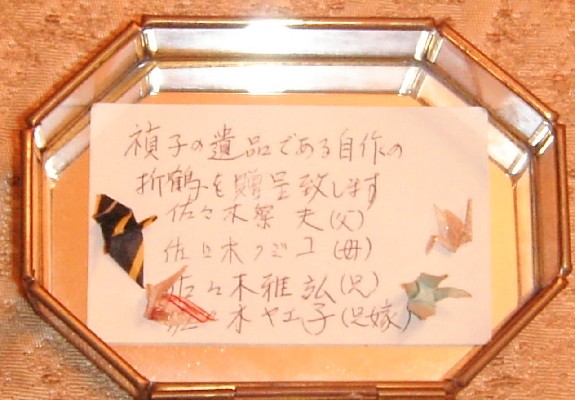 禎子の遺品である自作の
折鶴を贈呈致します
佐々木繁夫(父)
佐々木フジコ(母)
佐々木雅弘(兄)
佐々木ヤエ子(兄嫁)